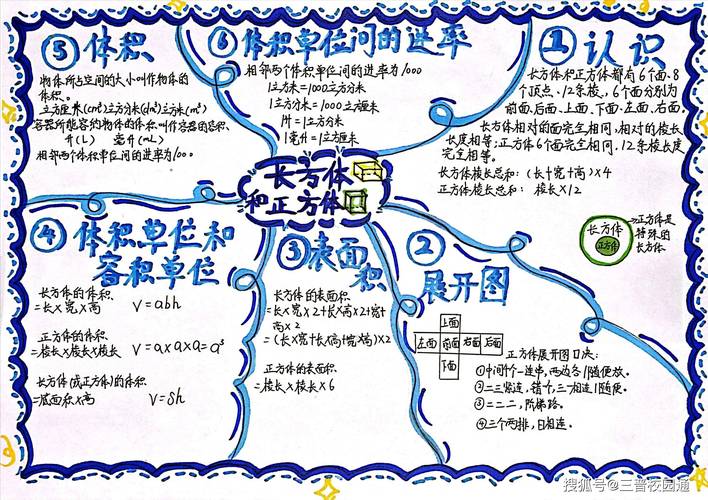 长方体
和正方体
① 认识
长方体和正方体都有6个面.8
个顶点、12条棱。6个面分别为
前面.后面.上面.下面.左面.右面.
长方体相对的面完全相同,相对的棱长
长度相等;正方体6个面完全相同.12条棱长度
完全相等。
长方体棱长总和:(长+宽+高)×4
正方体棱长总和: 棱长×12
长方体
正方体
→正方体是
特殊的
长方体.
② 展开图
上面
左面 前面 右面 后面
下面
正方体展开图口决:
①中间个一连串,两边各1随便放。
②二三紧连,错个,三一相连1随便。
③二二二,阶梯路。
④三个两排,日相连。
③ 表面积
长方体的表面积
=长×宽×2+长×高×2+宽×
高×2
=(长×宽+长×高+宽×高)×2
正方体的表面积.
=棱长×棱长×6
④ 体积单位和
容积单位
长方体的体积.
=长×宽×高 V=abh
正方体的体积.
=棱长×棱长×棱长 V=a×a×a=a³
长方体(或正方体)的体积
=底面积×高 V=Sh
⑤ 体积
物体所占空间的大小叫作物体的
体积。
立方厘米(cm³)立方分米(dm³)立方米(m³)
容器所能容纳物体的体积.叫作容器的容积.
升(L) 毫升(mL)
相邻两个体积单位间的进率为1000
⑥ 体积单位间的进率
相邻两个体积单位间的进率为1000
1立方米=1000立方分米
1立方分米=1000立方厘米
1升=1立方分米
1毫升=1立方厘米
搜狐号@三晋校园通